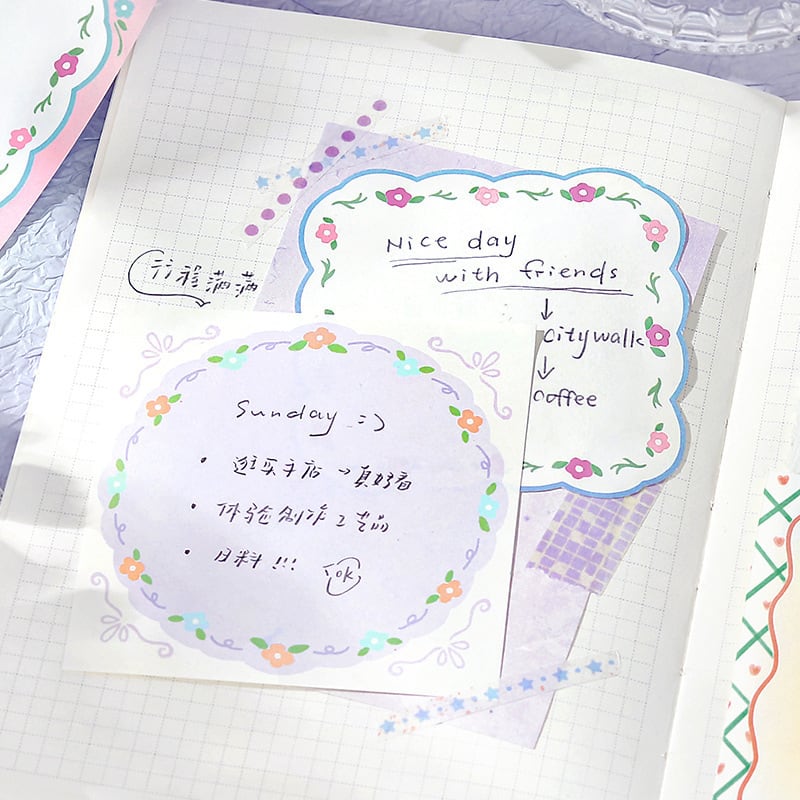 Nice day
with friends
↓
Citywalk
↓
Coffee
行程满满
Sunday :)
• 逛买手店 → 真好看
• 体验制作工艺品
• 日料!!! OK